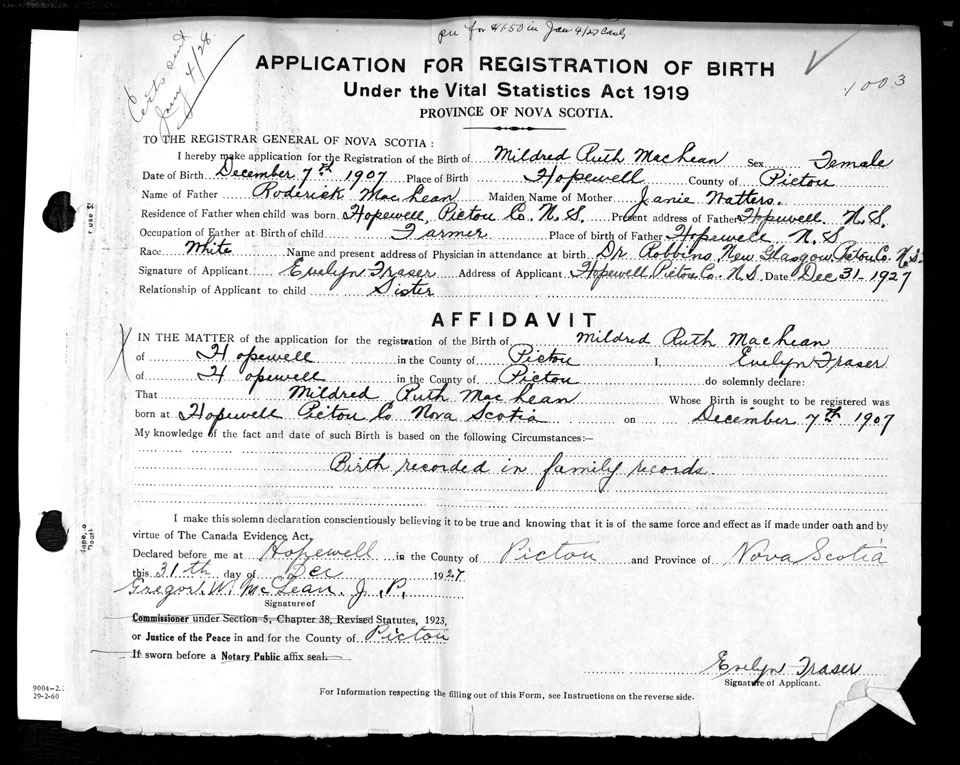 pd for $1.50 in Jan 4/28 Cash
Certs sent
Jany 4/28
1003
APPLICATION FOR REGISTRATION OF BIRTH
Under the Vital Statistics Act 1919
PROVINCE OF NOVA SCOTIA.
TO THE REGISTRAR GENERAL OF NOVA SCOTIA:
I hereby make application for the Registration of the Birth of Mildred Ruth MacLean Sex Female
Date of Birth December 7th 1907 Place of Birth Hopewell County of Pictou
Name of Father Roderick MacLean Maiden Name of Mother Janie Watters.
Residence of Father when child was born Hopewell Pictou Co. N.S. Present address of Father Hopewell N.S.
Occupation of Father at Birth of child Farmer Place of birth of Father Hopewell N.S
Race White Name and present address of Physician in attendance at birth Dr. Robbins New Glasgow Pictou Co. N.S.
Signature of Applicant Evelyn Fraser Address of Applicant Hopewell Pictou Co. N.S. Date Dec 31 1927
Relationship of Applicant to child Sister
AFFIDAVIT
IN THE MATTER of the application for the registration of the Birth of Mildred Ruth MacLean
of Hopewell in the County of Pictou I, Evelyn Fraser
of Hopewell in the County of Pictou do solemnly declare:
That Mildred Ruth MacLean Whose Birth is sought to be registered was
born at Hopewell Pictou Co Nova Scotia on December 7th 1907
My knowledge of the fact and date of such Birth is based on the following Circumstances:—
Birth recorded in family records.
I make this solemn declaration conscientiously believing it to be true and knowing that it is of the same force and effect as if made under oath and by
virtue of The Canada Evidence Act,
Declared before me at Hopewell in the County of Pictou and Province of Nova Scotia
this 31th day of Dec 1927
Gregor W. McLean. J.P.
Signature of
Commissioner under Section 5, Chapter 38, Revised Statutes, 1923,
or Justice of the Peace in and for the County of Pictou
If sworn before a Notary Public affix seal.
Evelyn Fraser
Signature of Applicant.
For Information respecting the filling out of this Form, see Instructions on the reverse side.
r use
9004-2
29-2-60